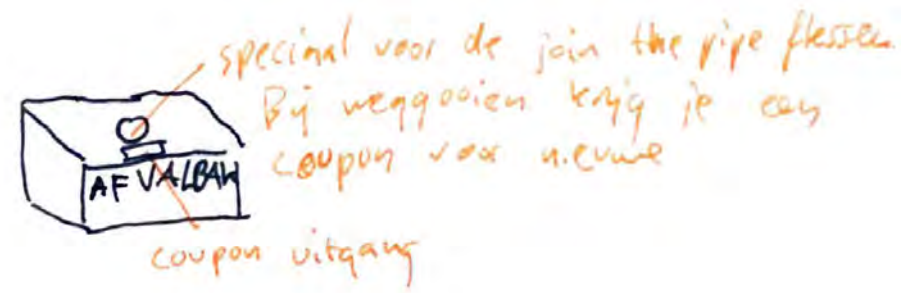 speciaal voor de join the pipe flessen
Bij weggooien krijg je een
coupon voor nieuwe
AFVALBAK
coupon uitgang